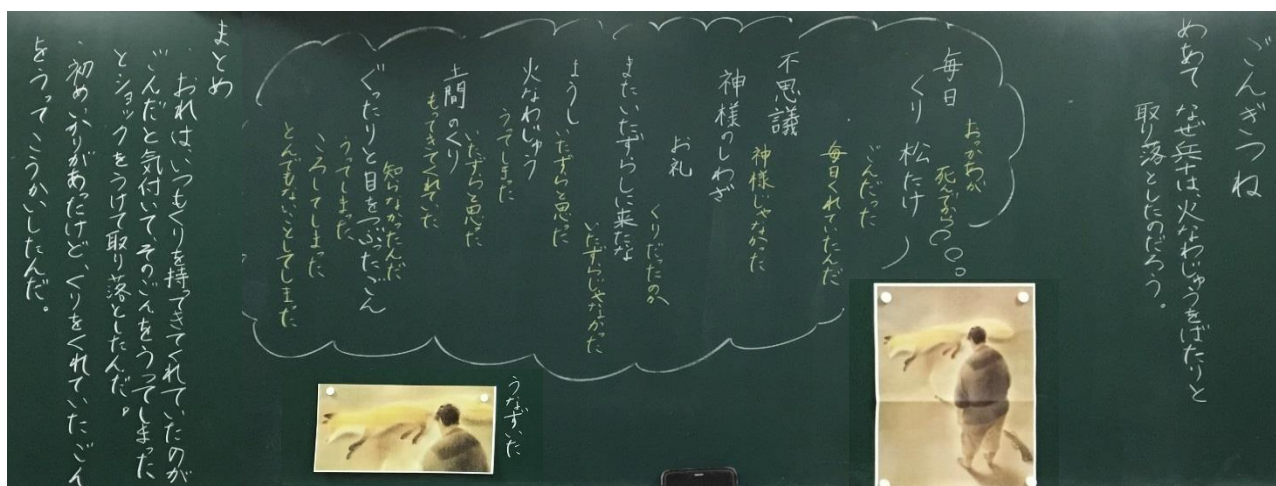 ごんぎつね
めあて なぜ兵十は火なわじゅうをばたりと
取り落としたのだろう。
おっかあが
死んでから
毎日
くり 松たけ
ごんだった
毎日くれていたんだ
不思議
神様じゃなかった
神様のしわざ
お礼
くりだったのか
またいたずらしに来たな
いたずらじゃなかった
ようし
いたずらと思った
火なわじゅう
うってしまった
いたずらと思った
土間のくり
もってきてくれていた
知らなかったんだ
ぐったりと目をつぶったごん
うってしまった
ころしてしまった
とんでもないことしてしまった
うなずいた
まとめ
・おれは、いつもくりを持ってきてくれていたのが
ごんだと気付いて、そのごんをうってしまった
とショックをうけて取り落としたんだ。
・初め、いかりがあったけど、くりをくれていたごん
をうってこうかいしたんだ。